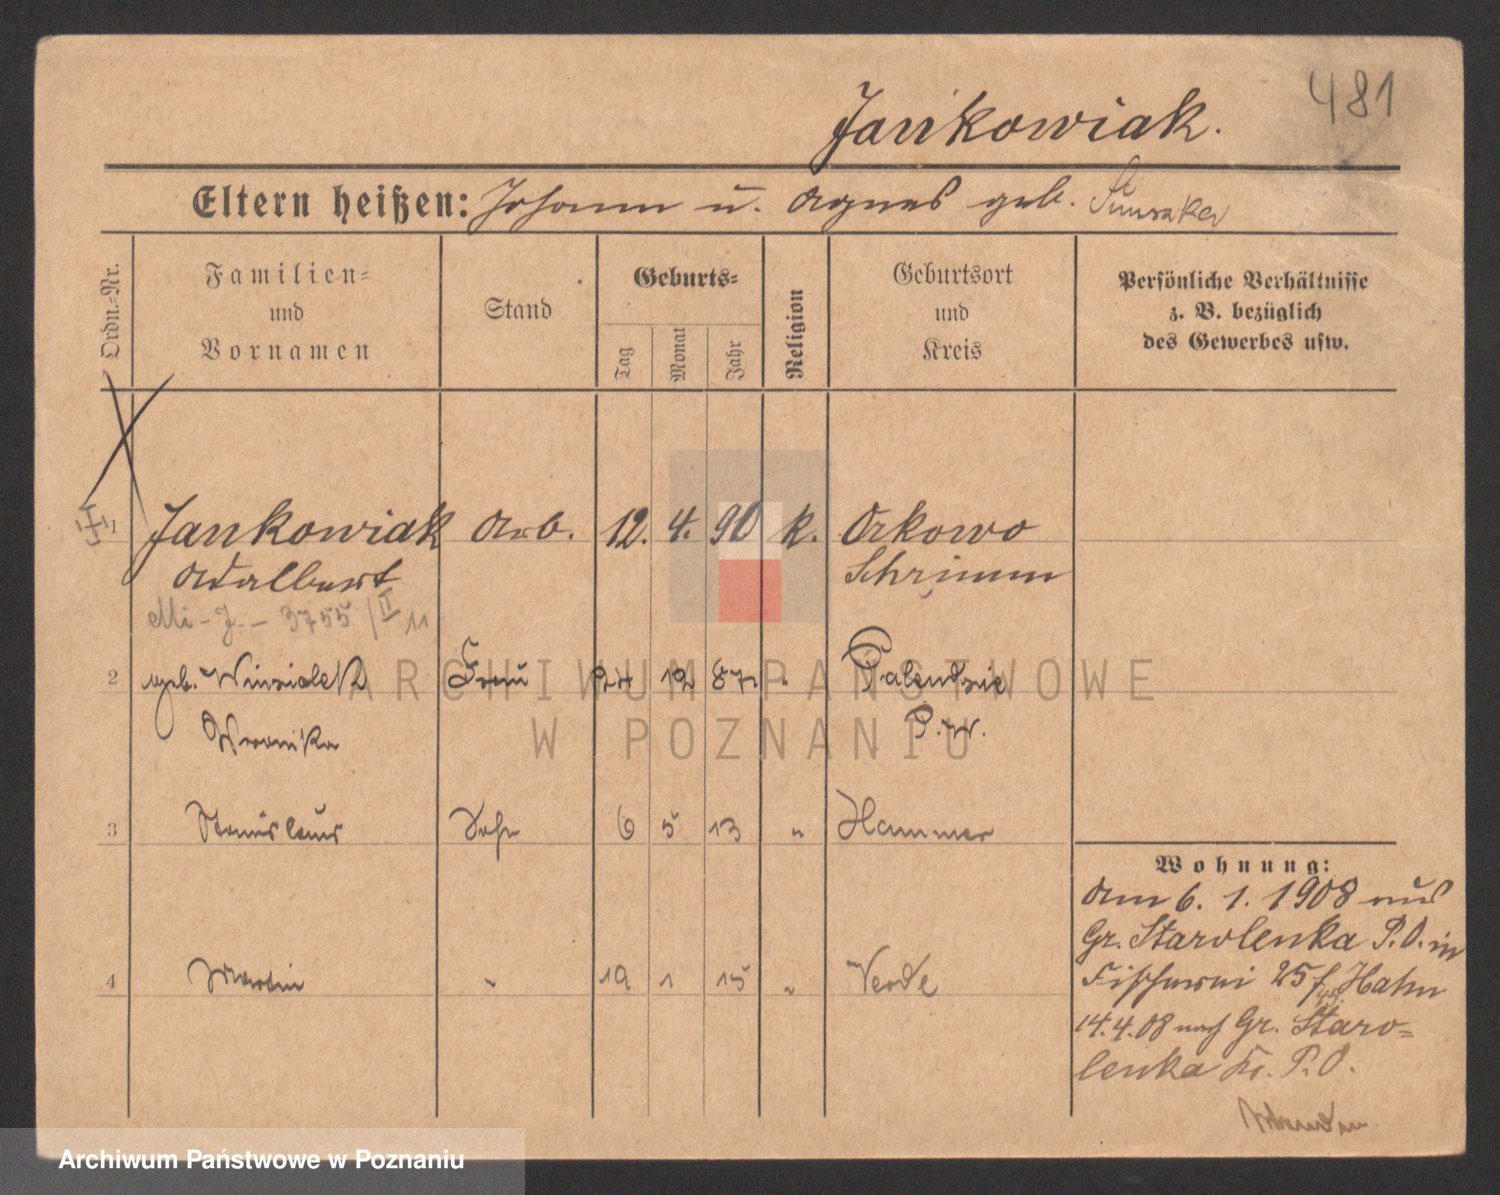 481
Jankowiak.
Eltern heißen: Johann u. Agnes geb.
Ordn.-Nr.
Familien-
und
Vornamen
Stand
Geburts-
Tag
Monat
Jahr
Religion
Geburtsort
und
Kreis
Persönliche Verhältnisse
z. B. bezüglich
des Gewerbes usw.
Jankowiak Arb. 12. 4. 90 k. Orkowo
Adalbert Schrimm
Mi - J. - 3755 / II 11
2 geb. Frau 24 12 87. " Palendzie
Weronika P. W.
3 Stanislaus Sohn 6 5 13 " Hammer
4 Martin " 19 1 15 "
Wohnung:
Am 6. 1. 1908 aus
Gr. Starolenka P. O. in
Fischerei 25 Hahn
14.4.08 nach Gr. Staro=
lenka Kr. P. O.
ARCHIWUM PAŃSTWOWE
W POZNANIU
Archiwum Państwowe w Poznaniu